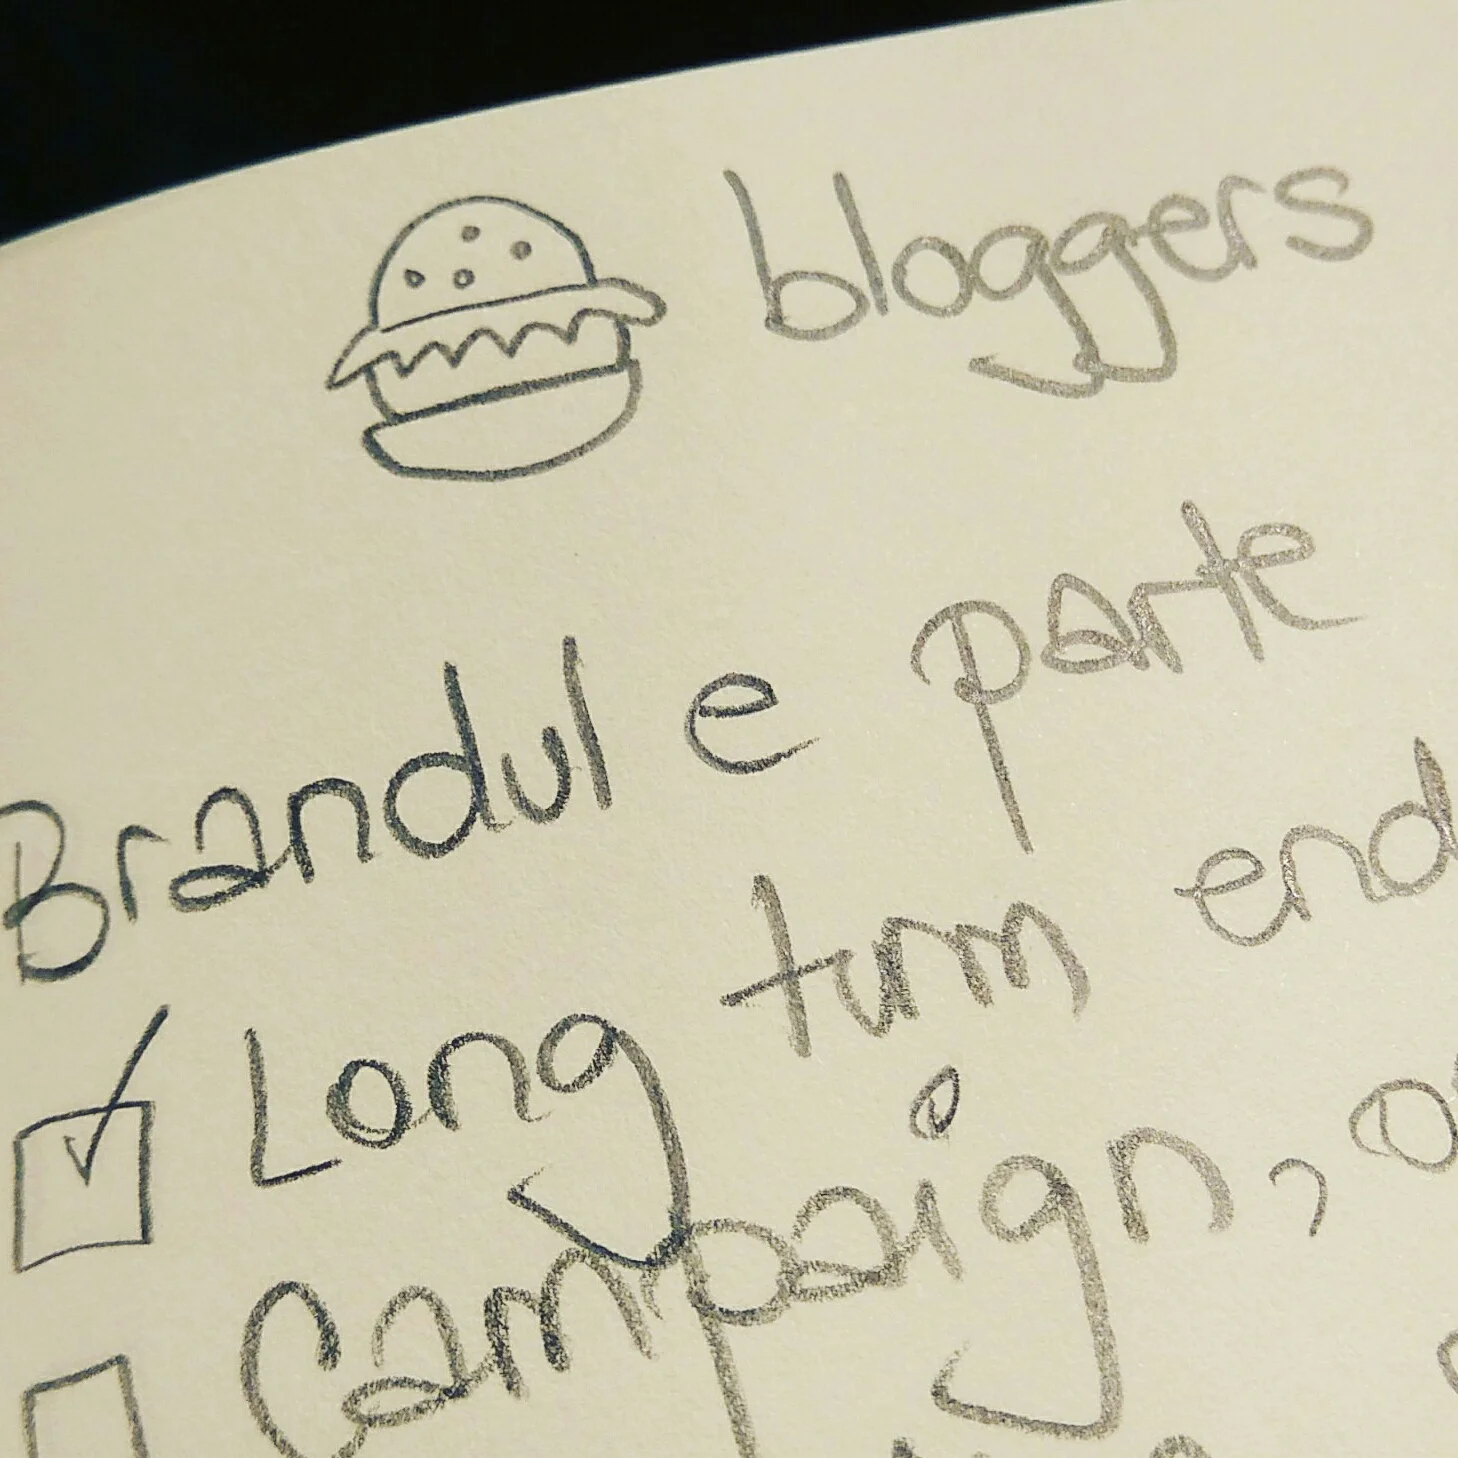 bloggers
Brandul e parte
Long turm end
Campaign,